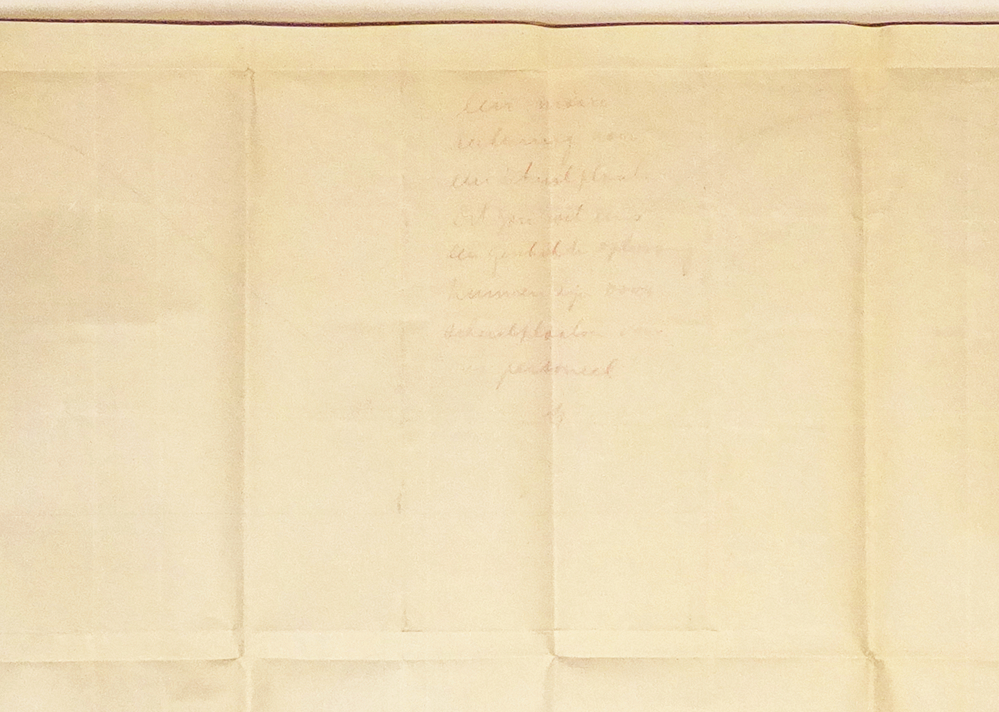 een mooie
tekening voor
een schuilplaats
Dit zou wel eens
een geschikte oplossing
kunnen zijn voor
schuilplaatsen voor
personeel